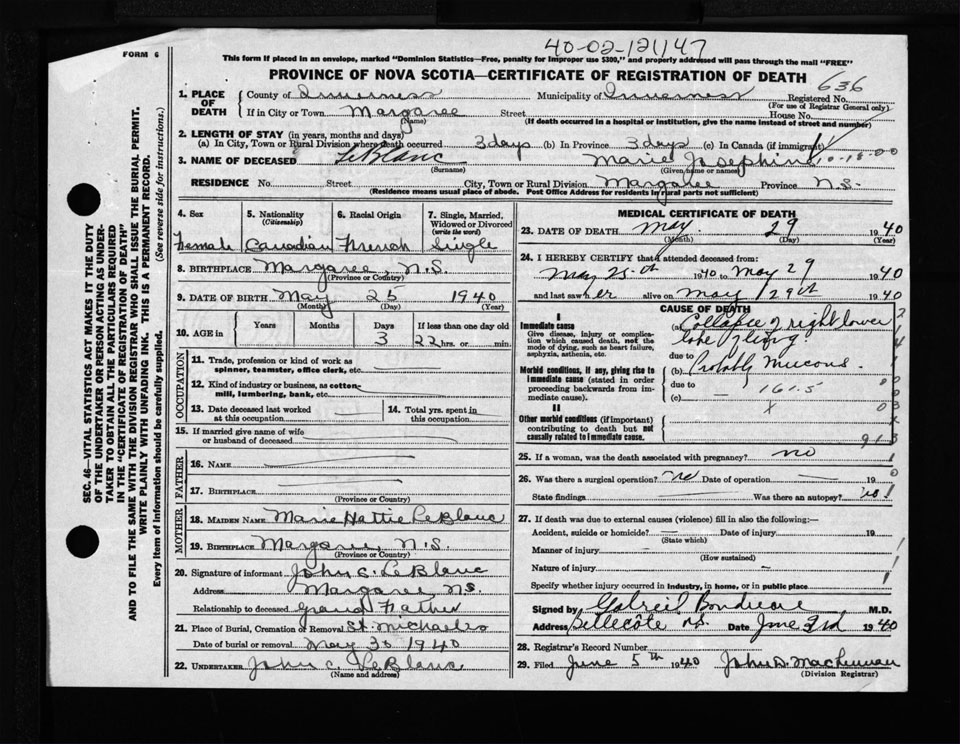 40-02-121147
FORM 6
This form if placed in an envelope, marked "Dominion Statistics—Free, penalty for improper use $300," and properly addressed will pass through the mail "FREE"
PROVINCE OF NOVA SCOTIA—CERTIFICATE OF REGISTRATION OF DEATH
636
1. PLACE OF DEATH
County of Inverness Municipality of Inverness Registered No.
(For use of Registrar General only)
If in City or Town Margaree Street House No.
(Name) (If death occurred in a hospital or institution, give the name instead of street and number)
2. LENGTH OF STAY (in years, months and days)
(a) In City, Town or Rural Division where death occurred 3 days (b) In Province 3 days (c) In Canada (if immigrant)
3. NAME OF DECEASED LeBlanc Marie Josephine 10-18-00
(Surname) (Given name or names)
RESIDENCE No. Street City, Town or Rural Division Margaree Province N.S.
(Residence means usual place of abode. Post Office Address for residents in rural parts not sufficient)
4. Sex 5. Nationality (Citizenship) 6. Racial Origin 7. Single, Married, Widowed or Divorced (write the word)
Female Canadian French Single
8. BIRTHPLACE Margaree, N.S.
(Province or Country)
9. DATE OF BIRTH May 25 1940
(Month) (Day) (Year)
10. AGE in Years Months Days If less than one day old
3 22 hrs. or min.
OCCUPATION
11. Trade, profession or kind of work as spinner, teamster, office clerk, etc.
12. Kind of industry or business, as cotton-mill, lumbering, bank, etc.
13. Date deceased last worked at this occupation 14. Total yrs. spent in this occupation
15. If married give name of wife or husband of deceased
FATHER
16. NAME
17. BIRTHPLACE
(Province or Country)
MOTHER
18. MAIDEN NAME Marie Hattie LeBlanc
19. BIRTHPLACE Margaree, N.S.
(Province or Country)
20. Signature of informant John C. LeBlanc
Address Margaree N.S.
Relationship to deceased Grand Father
21. Place of Burial, Cremation or Removal St. Michaels
Date of burial or removal May 30 1940
22. UNDERTAKER John C. LeBlanc
(Name and address)
MEDICAL CERTIFICATE OF DEATH
23. DATE OF DEATH May 29 1940
(Month) (Day) (Year)
24. I HEREBY CERTIFY that I attended deceased from:
May 25th 1940 to May 29 1940
and last saw her alive on May 29th 1940
CAUSE OF DEATH
I
Immediate cause
Give disease, injury or complication which caused death, not the mode of dying, such as heart failure, asphyxia, asthenia, etc.
(a) Collapse of right lower
lobe of lung
due to
Morbid conditions, if any, giving rise to immediate cause (stated in order proceeding backwards from immediate cause).
(b) Probably Mucous.
due to
161.5
(c)
II
Other morbid conditions (if important) contributing to death but not causally related to immediate cause.
25. If a woman, was the death associated with pregnancy? no
26. Was there a surgical operation? no Date of operation 19
State findings Was there an autopsy? no
27. If death was due to external causes (violence) fill in also the following:—
Accident, suicide or homicide? Date of injury 19
(State which)
Manner of injury
(How sustained)
Nature of injury
Specify whether injury occurred in industry, in home, or in public place
Signed by M.D.
Address Bellecôte N.S. Date June 3rd 1940
28. Registrar's Record Number
29. Filed June 5th 1940 John D. MacLennan
(Division Registrar)
SEC. 46—VITAL STATISTICS ACT MAKES IT THE DUTY
OF THE UNDERTAKER OR PERSON ACTING AS UNDER-
TAKER TO OBTAIN ALL THE PARTICULARS REQUIRED
IN THE "CERTIFICATE OF REGISTRATION OF DEATH"
AND TO FILE THE SAME WITH THE DIVISION REGISTRAR WHO SHALL ISSUE THE BURIAL PERMIT.
WRITE PLAINLY WITH UNFADING INK. THIS IS A PERMANENT RECORD.
Every item of information should be carefully supplied. (See reverse side for instructions.)